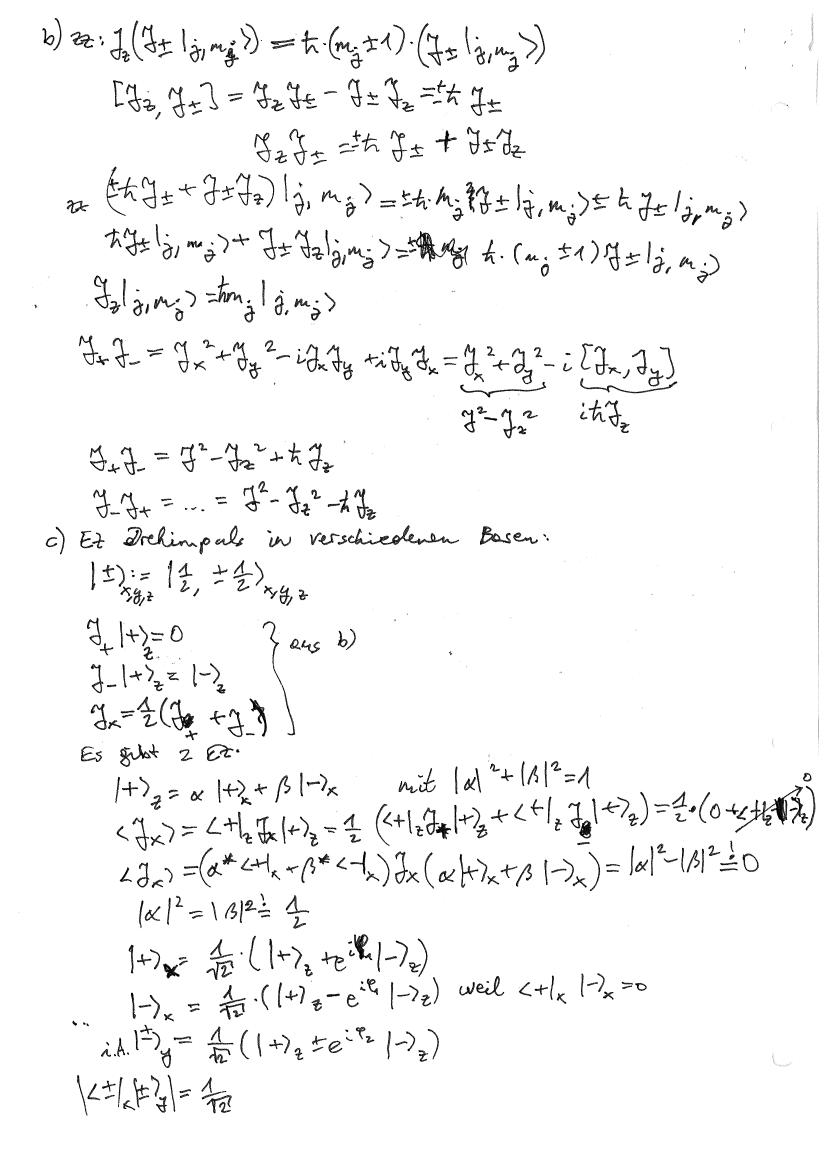 b) zz: J_z(J_± |j,m_j⟩) = ħ·(m_j ±1)·(J_± |j,m_j⟩)
[J_z, J_±] = J_z J_± − J_± J_z = ±ħ J_±
J_z J_± = ±ħ J_± + J_± J_z
zz (±ħJ_± + J_±J_z)|j, m_j⟩ = ±ħ·m_j J_±|j, m_j⟩ ± ħ J_±|j, m_j⟩
ħJ_±|j, m_j⟩ + J_± J_z|j,m_j⟩ = ħ·(m_j ±1) J_±|j, m_j⟩
J_z|j,m_j⟩ = ħm_j |j, m_j⟩
J_+ J_- = J_x² + J_y² − iJ_xJ_y + iJ_y J_x = J_x² + J_y² − i [J_x, J_y]
J² − J_z² iħJ_z
J_+J_- = J² − J_z² + ħ J_z
J_-J_+ = ... = J² − J_z² − ħJ_z
c) EZ Drehimpuls in verschiedenen Basen:
|±⟩_x,y,z := |1/2, ±1/2⟩_x,y,z
J_+|+⟩_z = 0
J_-|+⟩_z = |−⟩_z } aus b)
J_x = 1/2 (J_+ + J_-)
Es gibt 2 EZ.
|+⟩_z = α |+⟩_x + β |−⟩_x mit |α|² + |β|² = 1
⟨J_x⟩ = ⟨+|_z J_x |+⟩_z = 1/2 (⟨+|_z J_+ |+⟩_z + ⟨+|_z J_- |+⟩_z) = 1/2·(0 + ⟨+|_z |−⟩_z) 0
⟨J_x⟩ = (α* ⟨+|_x + β* ⟨−|_x) J_x (α|+⟩_x + β |−⟩_x) = |α|² − |β|² =! 0
|α|² = |β|² =! 1/2
|+⟩_x = 1/√2 · (|+⟩_z + e^{iφ₁} |−⟩_z)
|−⟩_x = 1/√2 · (|+⟩_z − e^{iφ₁} |−⟩_z) weil ⟨+|_x |−⟩_x = 0
...
i.A. |±⟩_y = 1/√2 (|+⟩_z ± e^{iφ₂} |−⟩_z)
|⟨±|_x|±⟩_y| = 1/√2